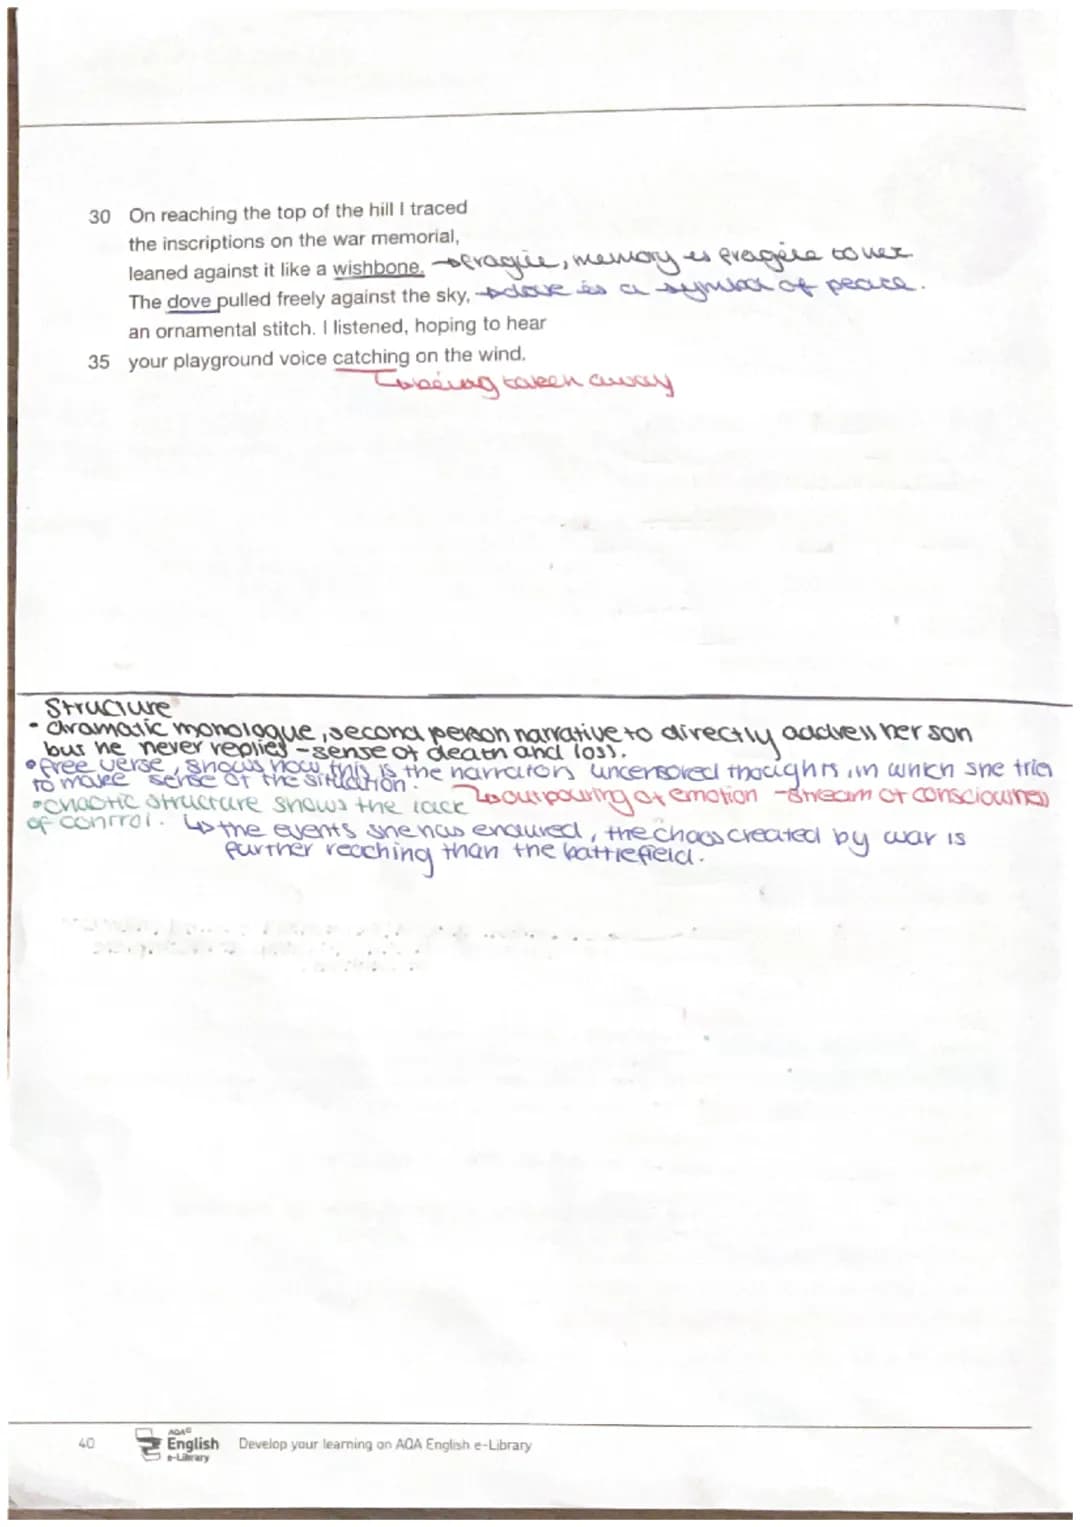 30 On reaching the top of the hill I traced
the inscriptions on the war memorial,
leaned against it like a wishbone. → fragile, memory is fragile to her
The dove pulled freely against the sky, → dove is a symbol of peace.
an ornamental stitch. I listened, hoping to hear
35 your playground voice catching on the wind.
↳ being taken away
Structure
• dramatic monologue, second person narrative to directly address her son
but he never replies - sense of death and loss.
• free verse, shows how this is the narrators uncensored thoughts, in which she tries
to make sense of the situation. ↳ outpouring of emotion - stream of consciousness
• chaotic structure shows the lack
of control. ↳ the events she has endured, the chaos created by war is
further reaching than the battlefield.
40 AQA English e-Library Develop your learning on AQA English e-Library